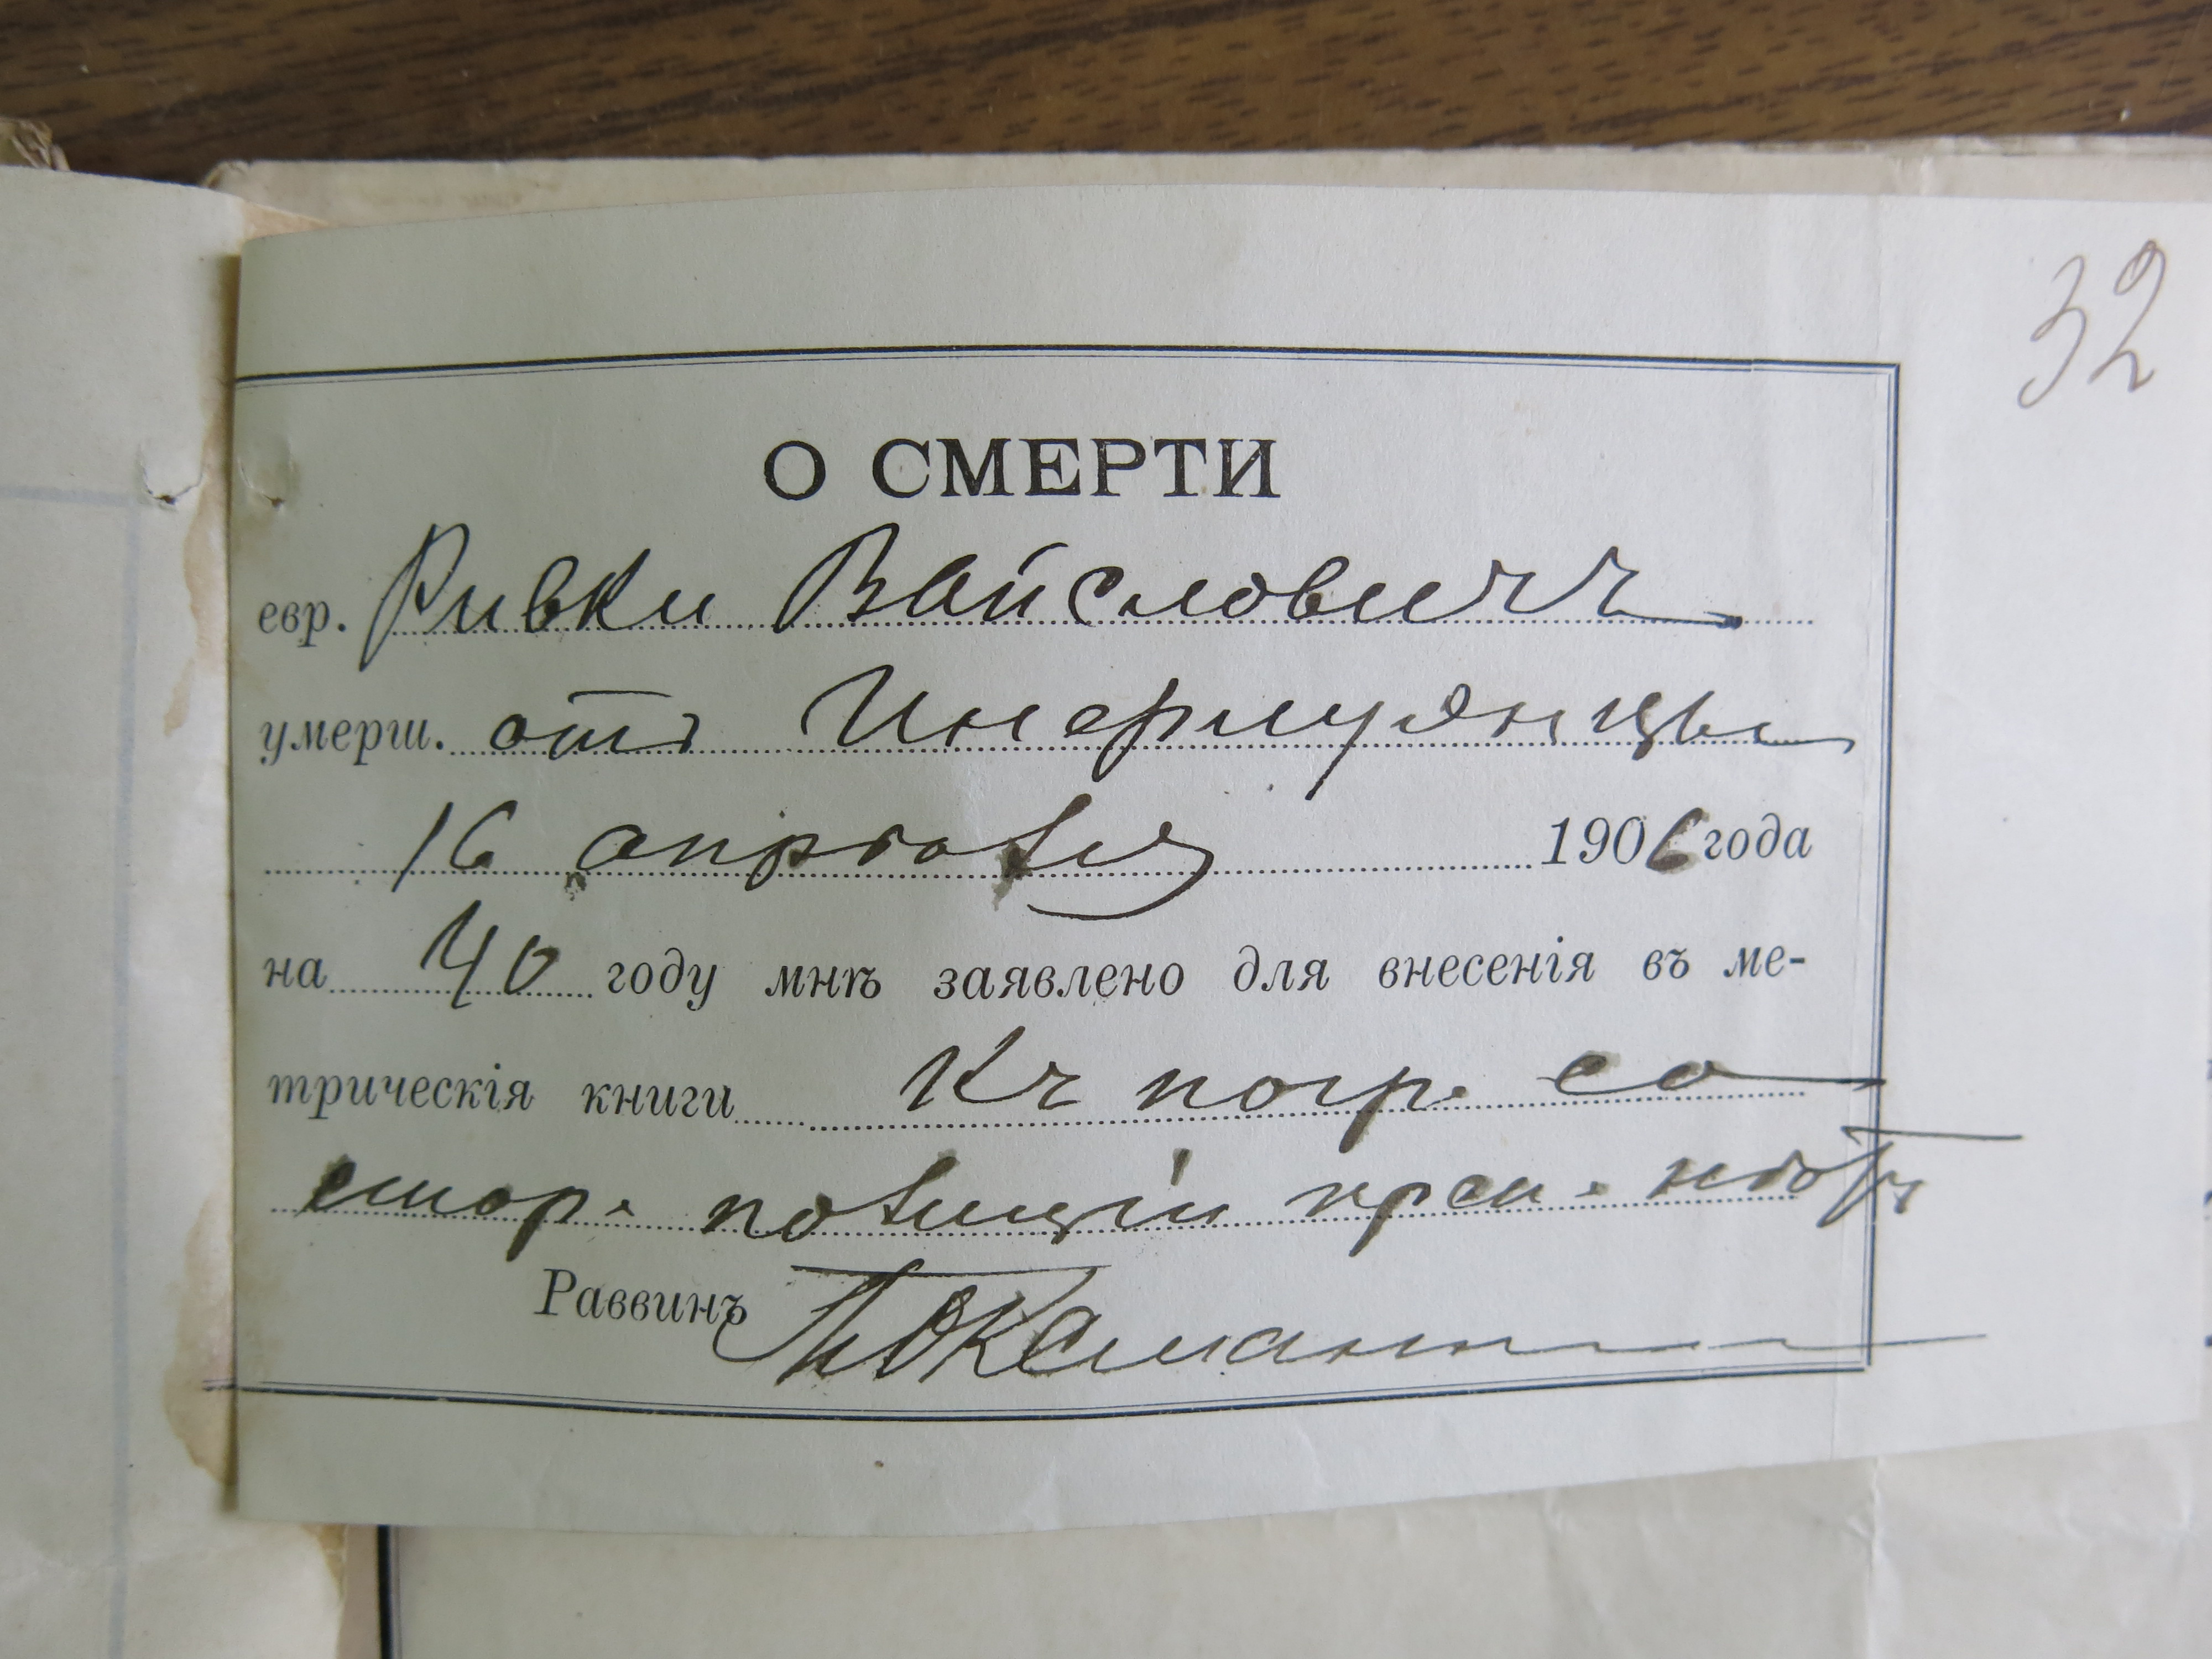 32
О СМЕРТИ
евр. Ривки Войслович
умерш. отъ
16 апрѣля 1906 года
на 40 году мнѣ заявлено для внесенія въ ме-
трическія книги Къ погр. со
стор. полиціи преп. нѣтъ
Раввинъ